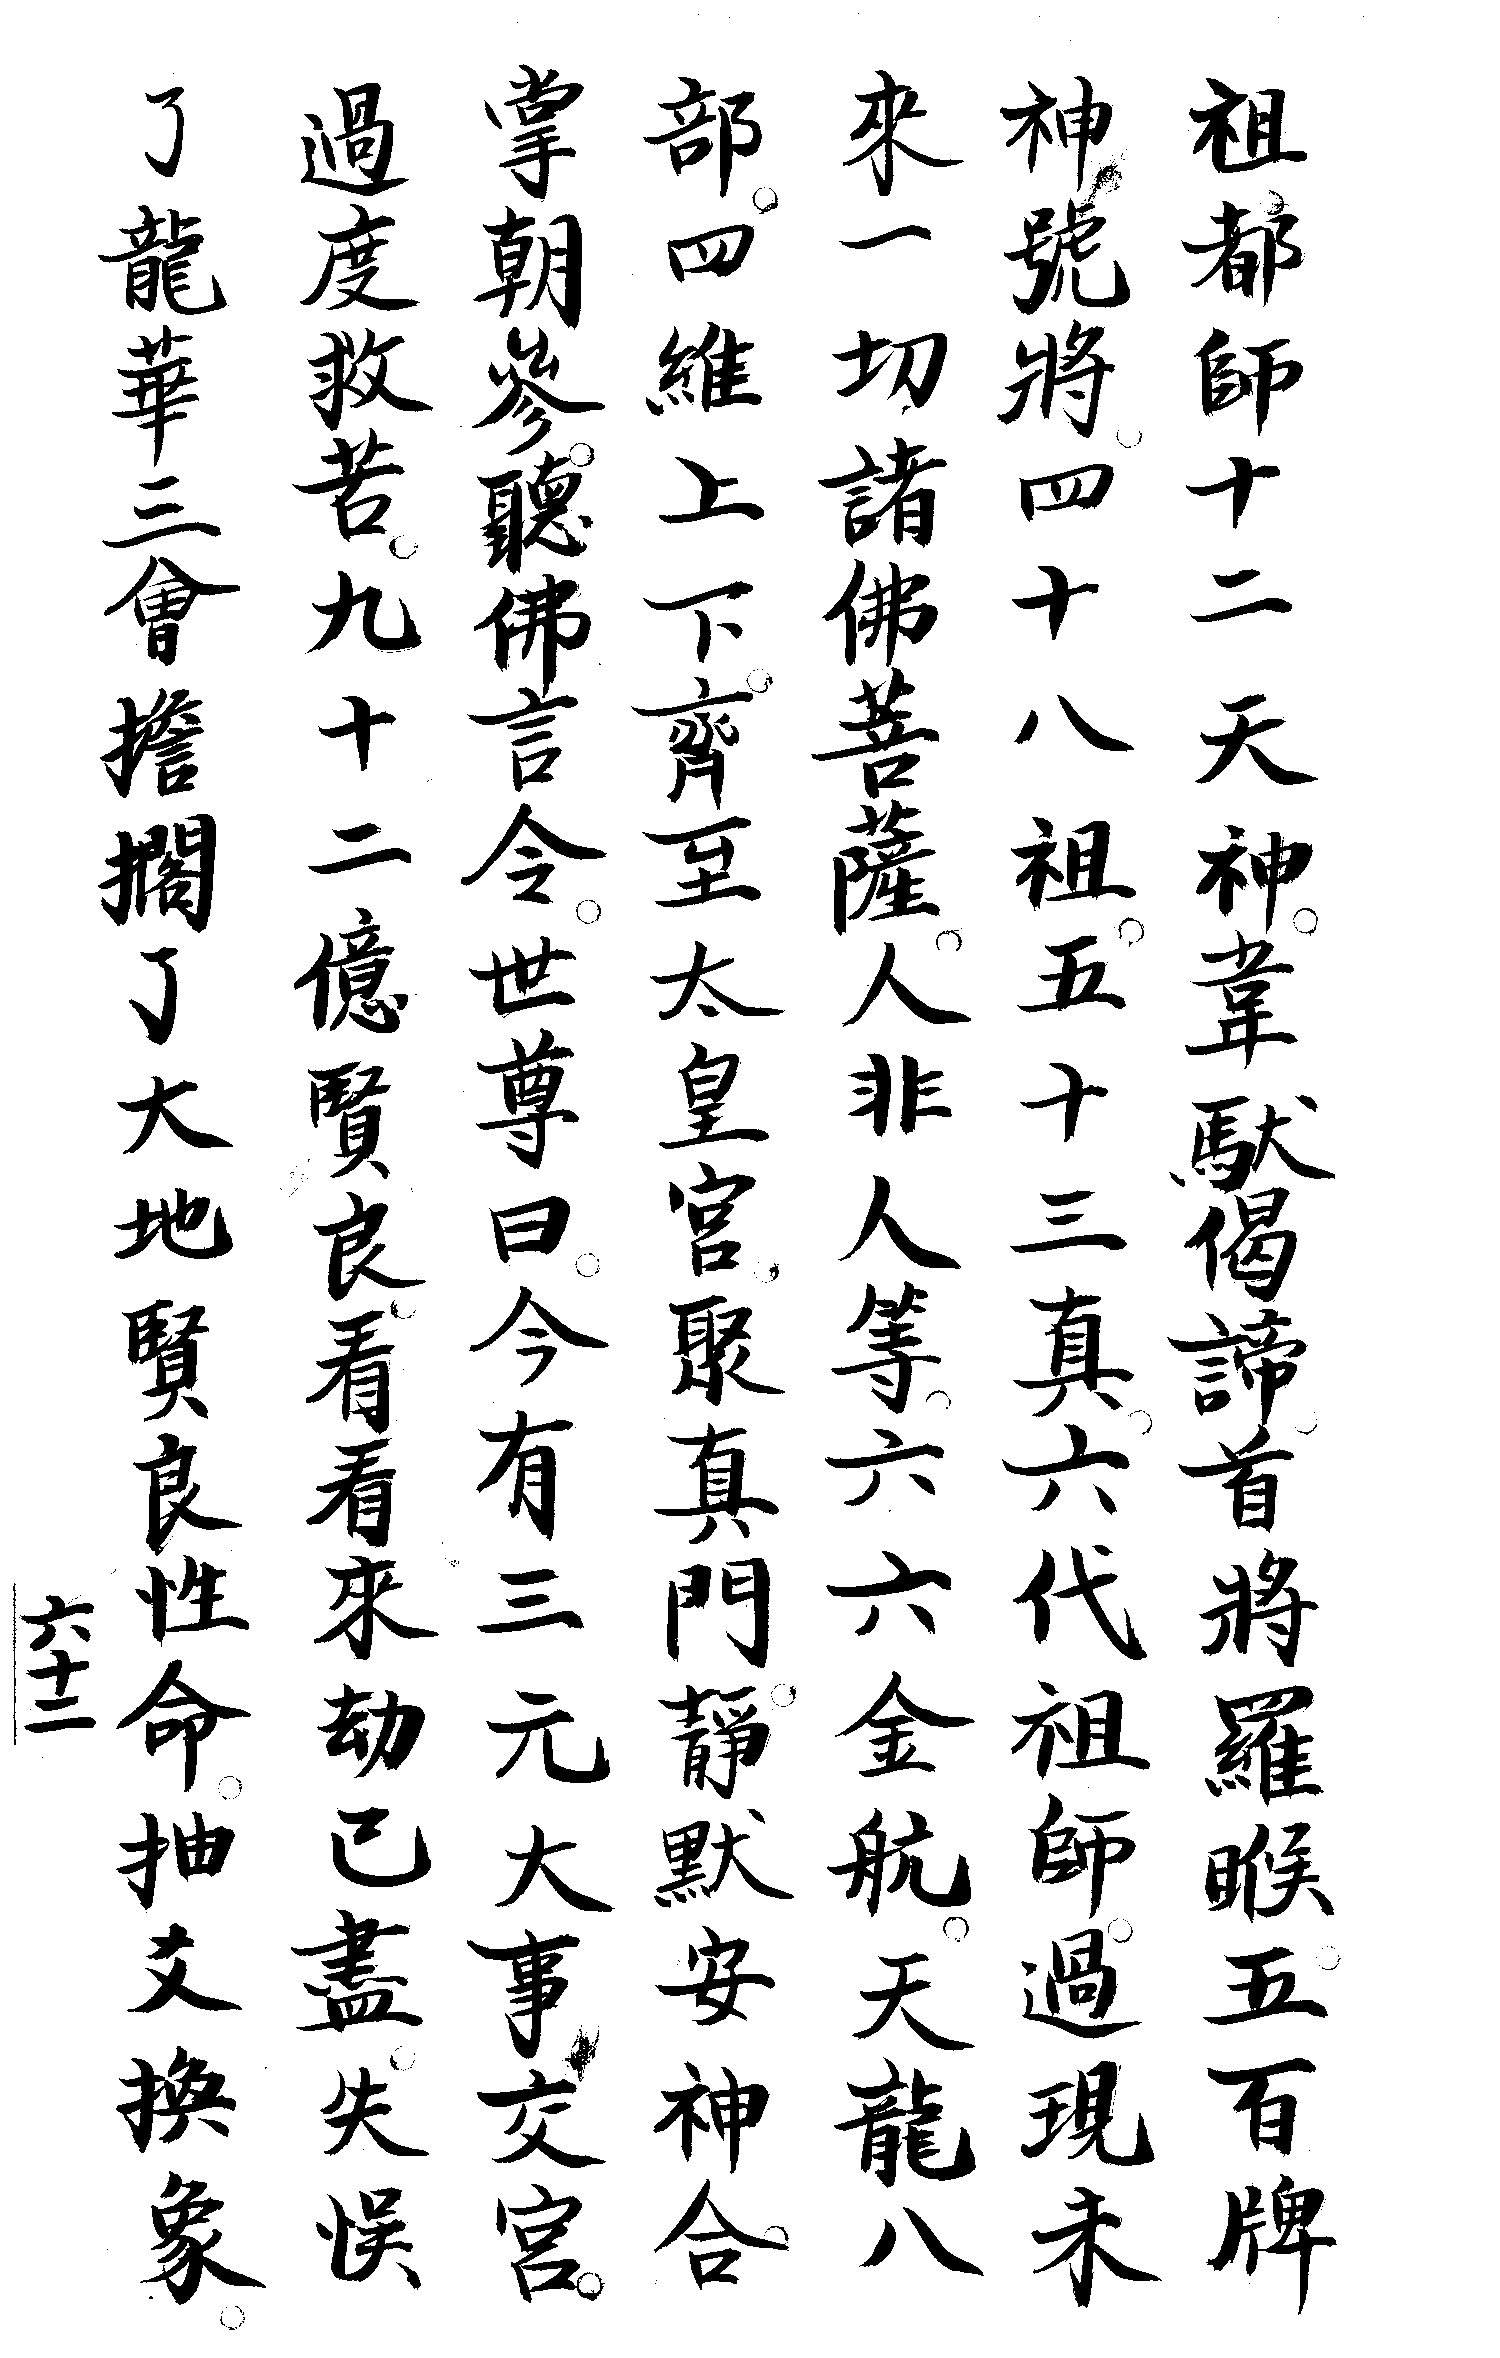 祖都師十二天神。韋馱偈諦。首將羅睺。五百牌
神號將。四十八祖。五十三真。六代祖師。過現未
來一切諸佛菩薩。人非人等。六六金航。天龍八
部。四維上下。齊至太皇宮。聚真門。靜默安神。合
掌朝參。聽佛言令。世尊曰。今有三元大事交宮。
過度救苦。九十二億賢良。看看來劫已盡。失悞
了龍華三會擔擱了大地賢良性命。抽爻換象。
六十二